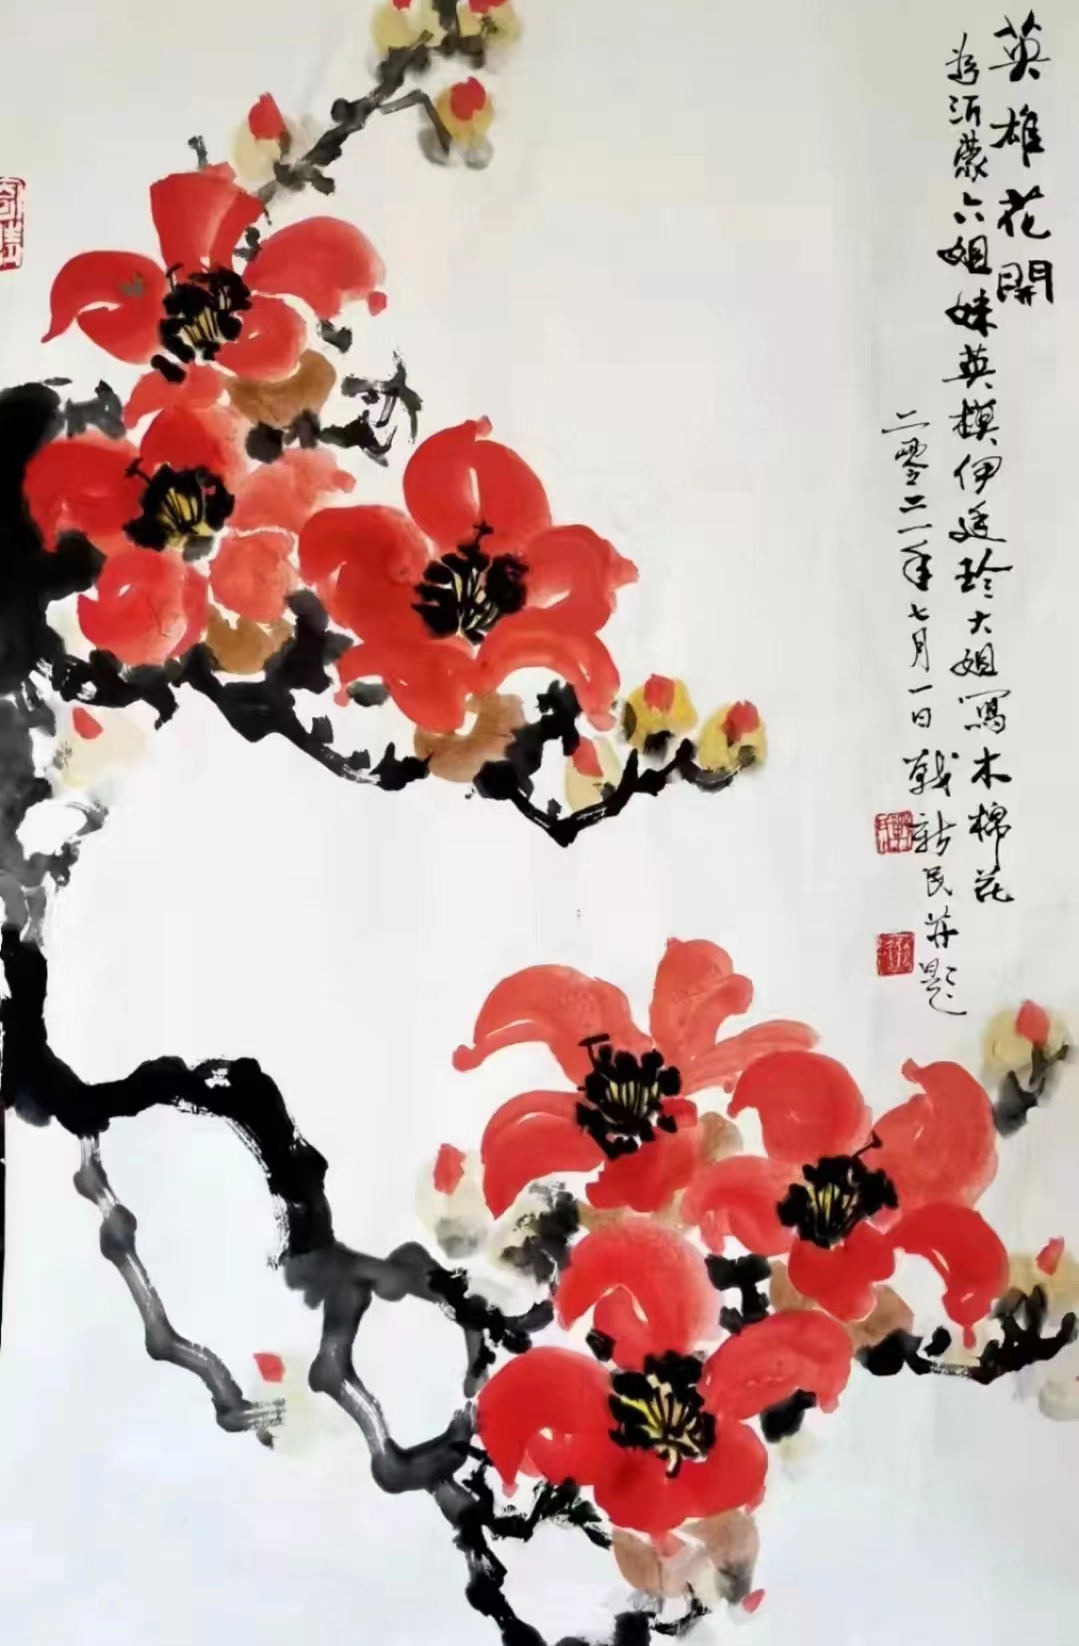 英雄花開
为沂蒙六姐妹英模伊廷珍大姐寫木棉花
二零二一年七月一日戟新民并題